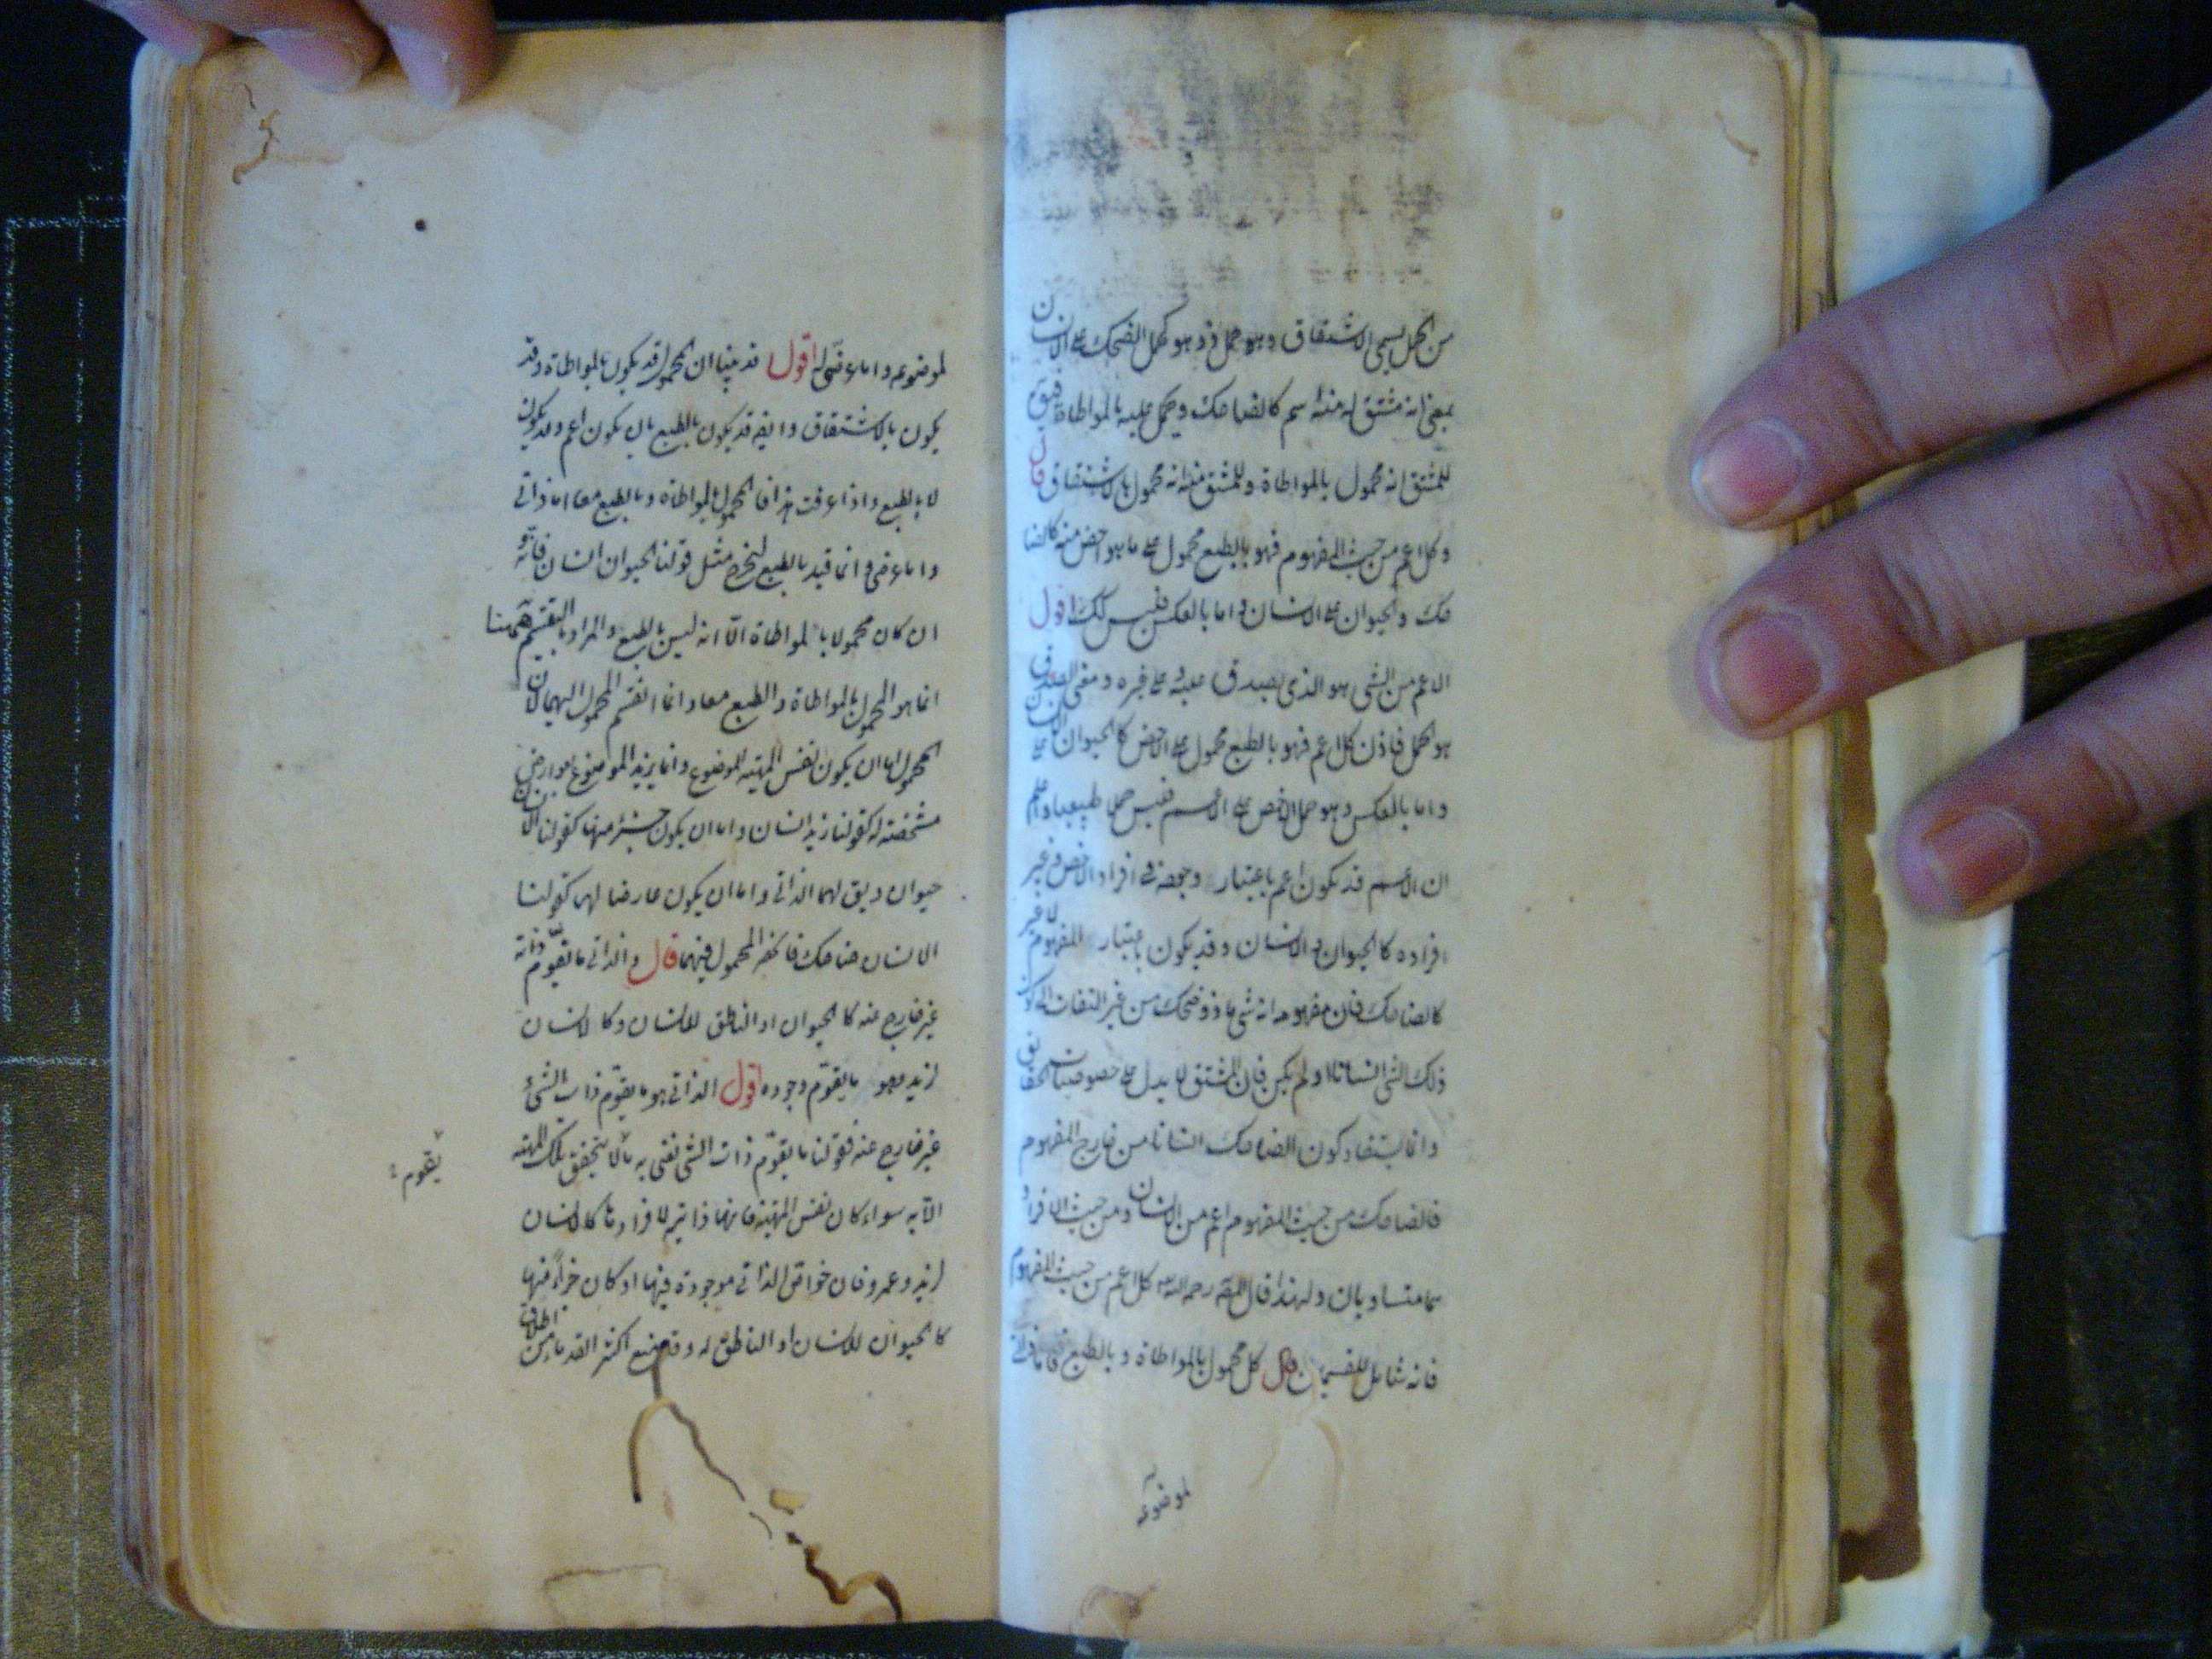 من الحمل يسمى الاشتقاق وهو حمل ذو هو كحمل الضحك على الانسان
بمعنى انه مشتق له منه اسم كالضاحك ويحمل عليه بالمواطاة فيق
للمشتق انه محمول بالمواطاة وللمشتق منه انه محمول بالاشتقاق قال
وكل اعم من حيث المفهوم فهو بالطبع محمول على ما هو اخص منه كالضا
حك والحيوان على الانسان واما بالعكس فليس كك اقول
الاعم من الشى هو الذى يصدق عليه وعلى غيره ومعنى الصدق
هو الحمل فاذن كل اعم فهو بالطبع محمول على الاخص كالحيوان على الانسان
واما بالعكس وهو حمل الاخص على الاعم فليس حملا طبيعيا واعلم
ان الاعم قد يكون اعم باعتبار وجوده فى افراد الاخص وغير
افراده كالحيوان والانسان وقد يكون باعتبار المفهوم لا غير
كالضاحك فان مفهومه انه شى ما ذو ضحك من غير التفات الى كون
ذلك الشى انسانا او لم يكن فان المشتق لا يدل على خصوصيات الحقايق
وانما يستفاد كون الضاحك انسانا من خارج المفهوم
فالضاحك من حيث المفهوم اعم من الانسان ومن حيث الافراد
هما متساويان ولهذا قال المصّ رحمه الله كل اعم من حيث المفهوم
فانه شامل للقسمين قال كل محمول بالمواطاة وبالطبع فاما ذاتى
لموضوعه
لموضوعه واما عرضى له اقول قد بينا ان المحمول قد يكون بالمواطاة وقد
يكون بالاشتقاق وايضه قد يكون بالطبع بان يكون اعم وقد يكون
لا بالطبع واذا عرفت هذا فالمحمول بالمواطاة وبالطبع معا اما ذاتى
واما عرضى وانما قيد بالطبع ليخرج مثل قولنا الحيوان انسان فانه و
ان كان محمولا بالمواطاة الا انه ليس بالطبع والمراد بالتقسيم ههنا
انما هو المحمول بالمواطاة والطبع معا وانما انقسم المحمول اليهما لان
المحمول اما ان يكون نفس المهية الموضوع وانما يزيد الموضوع بعوارض
مشخصة له كقولنا زيد انسان واما ان يكون جزء منها كقولنا الانسان
حيوان ويق لهما الذاتى واما ان يكون عارضا لها كقولنا
الانسان ضاحك فانحصر المحمول فيهما قال والذاتى ما يقوّم ذاته
غير خارج عنه كالحيوان او الناطق للانسان وكالانسان
لزيد وهو ما يقوّم وجوده اقول الذاتى هو ما يقوّم ذات الشئ
غير خارج عنه فقولنا ما يقوّم ذات الشى نعنى به ما لا يتحقق تلك المهية
يقوم
الا به سواء كان نفس المهية فانها ذاتية لافرادها كالانسان
لزيد وعمرو فان خواص الذاتى موجودة فيها او كان جزاءً منها
كالحيوان للانسان او الناطق له وقد منع اكثر القدماء من اطلاق